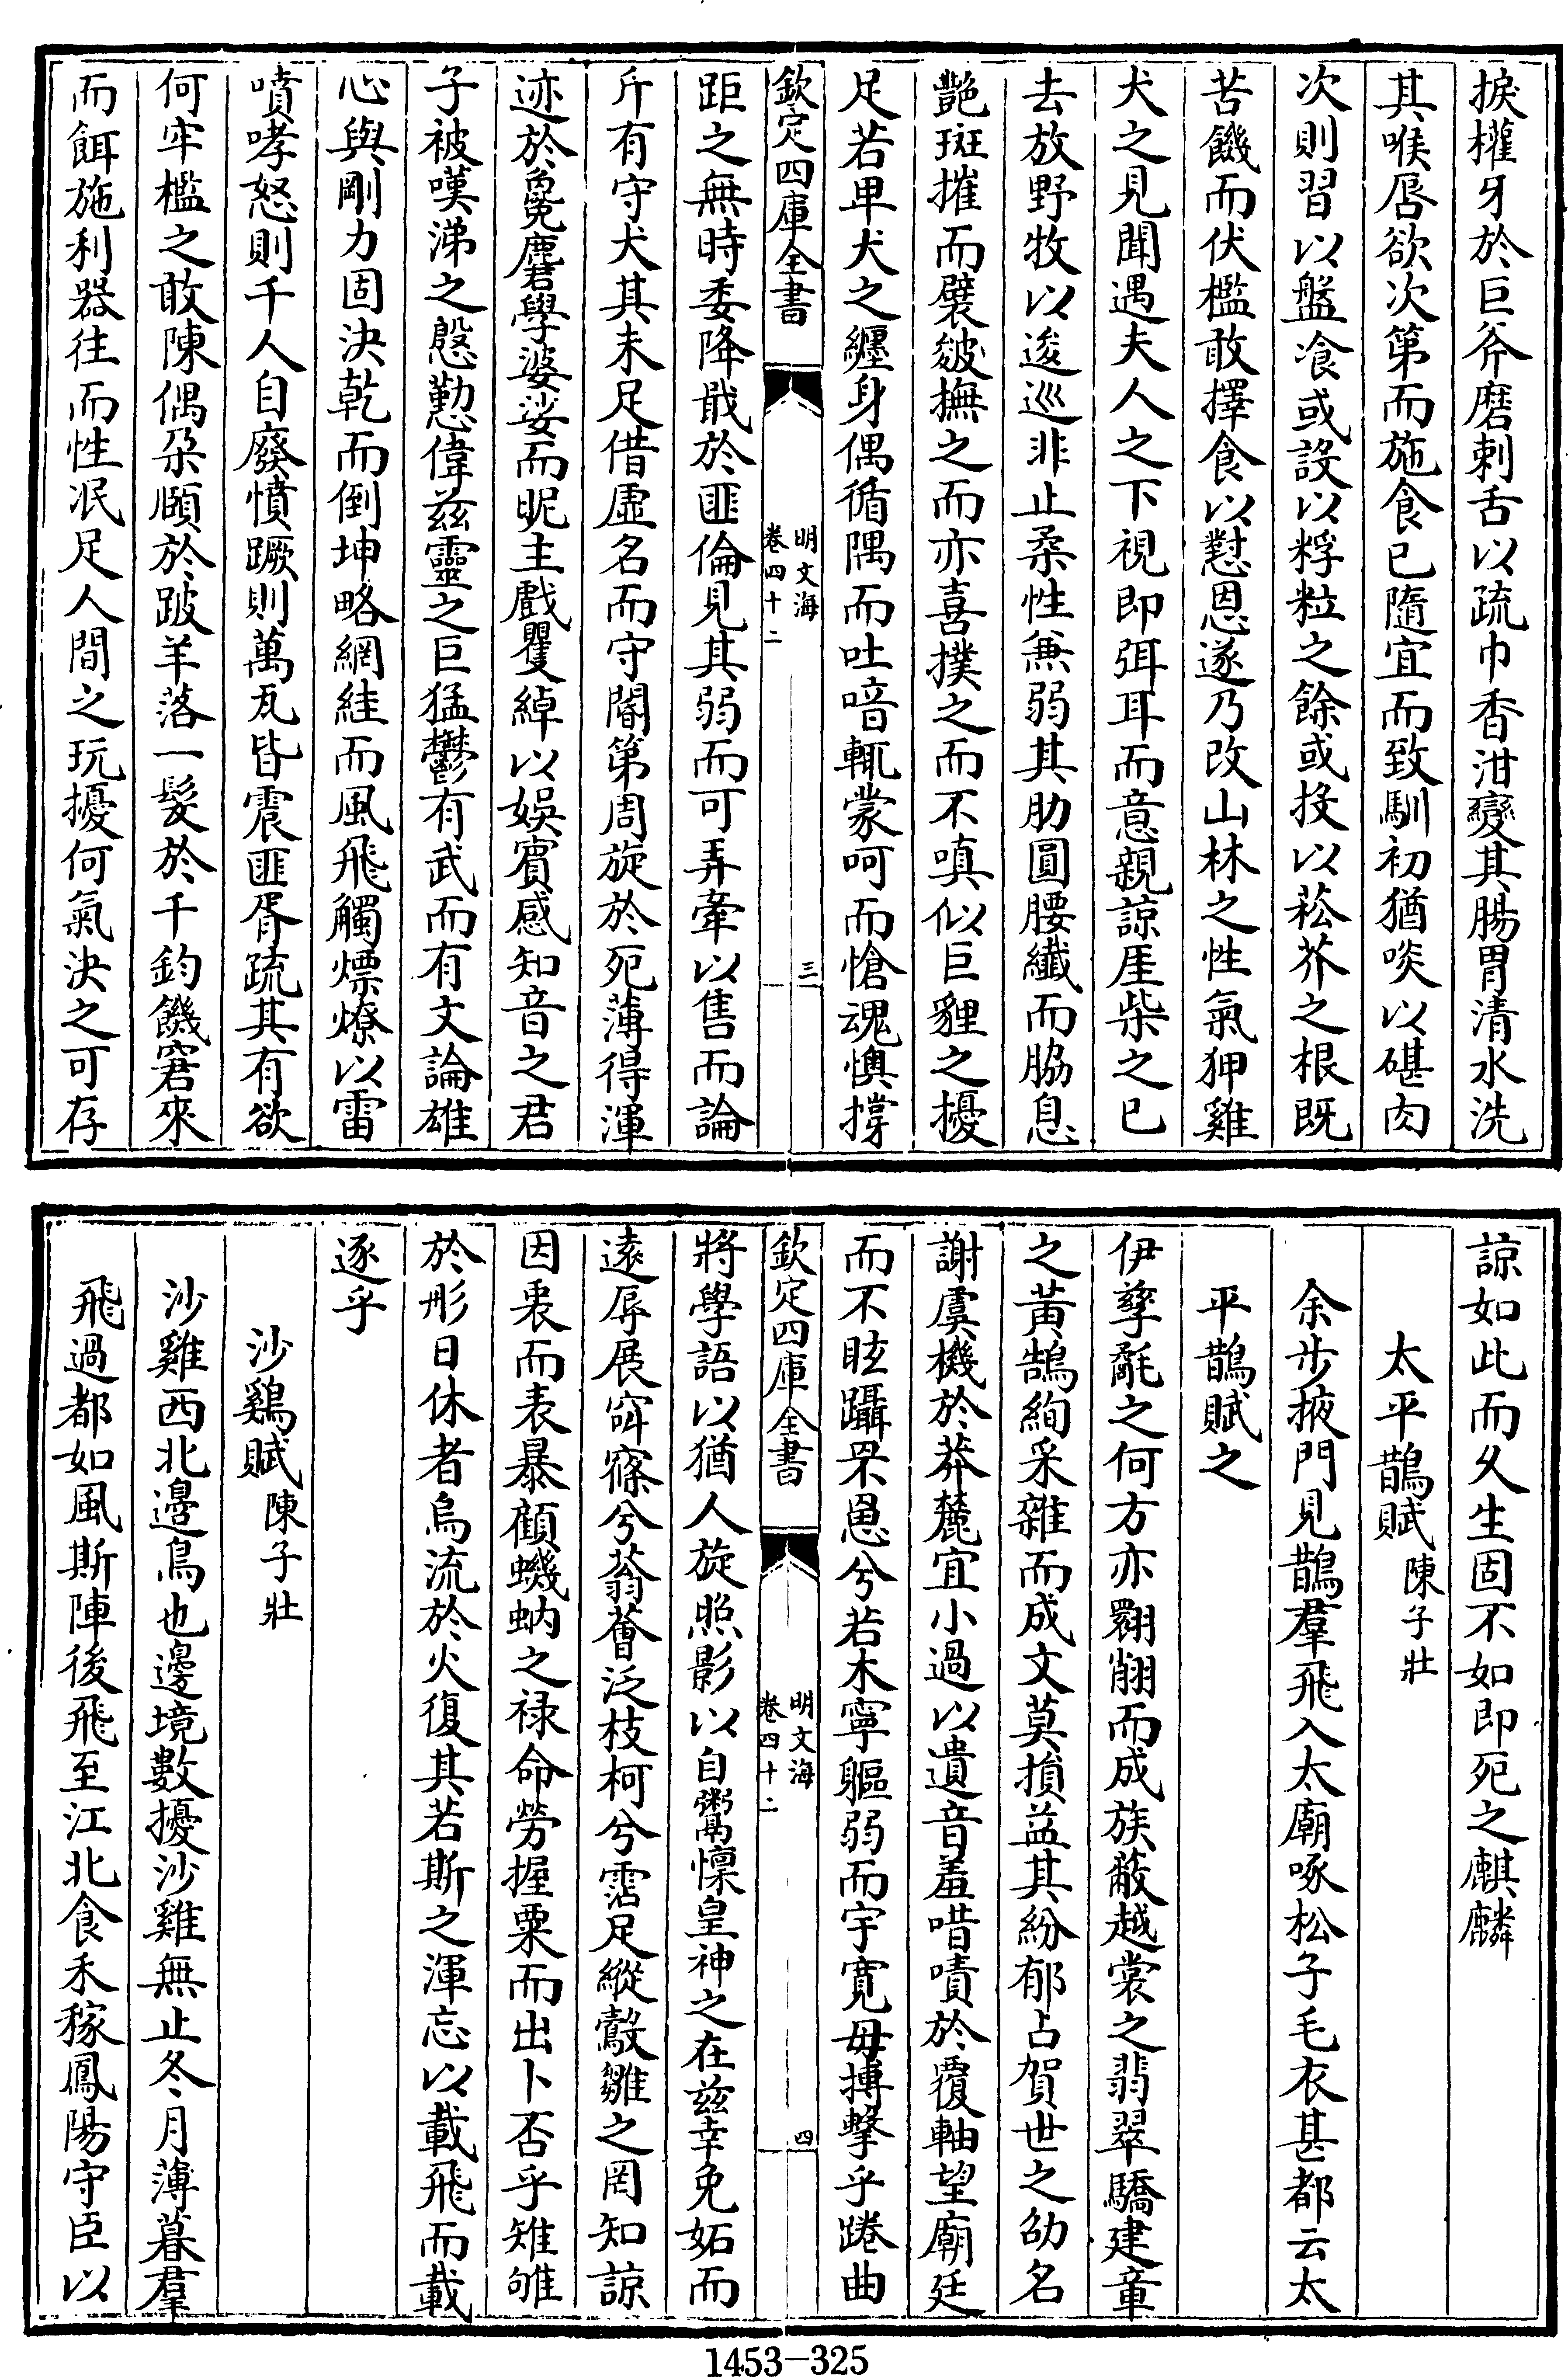 捩權牙於巨斧磨刺舌以疏巾香泔變其腸胃清水洗
其喉唇欲次第而施食已隨宜而致馴初猶啖以碪肉
次則習以盤飡或設以粰粒之餘或投以菘芥之根既
苦饑而伏檻敢擇食以懟恩遂乃改山林之性氣狎雞
犬之見聞遇夫人之下視即弭耳而意親諒厓柴之已
去放野牧以逡巡非止柔性兼弱其肋圓腰纖而脇息
艷斑摧而襞皴撫之而亦喜撲之而不嗔似巨貍之擾
足若卑犬之纏身偶循隅而吐喑輒蒙呵而愴魂懊撐
欽定四庫全書
明文海
卷四十二
三
距之無時委降戢於匪倫見其弱而可弄牽以售而論
斤有守犬其未足借虛名而守閽第周旋於死薄得渾
迹於㕙麏學婆娑而昵主戲矍綽以娛賓感知音之君
子被嘆涕之慇懃偉茲靈之巨猛鬱有武而有文論雄
心與剛力固決乾而倒坤略網絓而風飛觸熛燎以雷
噴哮怒則千人自廢憤蹶則萬瓦皆震匪胥疏其有欲
何牢檻之敢陳偶朶頤於跛羊落一髮於千鈞饑窘來
而餌施利器往而性泯足人間之玩擾何氣決之可存
諒如此而久生固不如即死之麒麟
太平鵲賦陳子壯
余步掖門見鵲羣飛入太廟啄松子毛衣甚都云太
平鵲賦之
伊孳毻之何方亦翾翢而成族蔽越裳之翡翠驕建章
之黃鵠絢采雜而成文莫損益其紛郁占賀世之劭名
謝虞機於莽麓宜小過以遺音羞唶嘖於覆軸望廟廷
而不眩躡罘罳兮若木寧軀弱而宇寛毋摶擊乎踡曲
欽定四庫全書
明文海
卷四十二
四
將學語以猶人旋照影以自鬻懍皇神之在茲幸免妬而
遠辱展窲窱兮蓊薈泛枝柯兮霑足縱鷇雛之罔知諒
因裘而表暴顧蟣蚋之祿命勞握粟而出卜否乎雉雊
於形日休者烏流於火復其若斯之渾忘以載飛而載
逐乎
沙鷄賦陳子壯
沙雞西北邊鳥也邊境數擾沙雞無止冬月薄暮羣
飛過都如風斯陣後飛至江北食禾稼鳳陽守臣以
1453-325